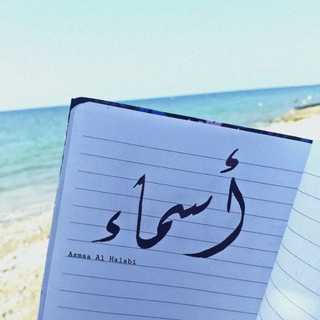 أسماء
Asmaa Al Halabi